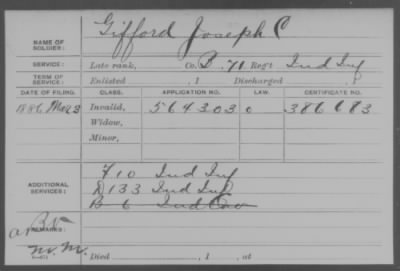 NAME OF SOLDIER: Gifford Joseph C
SERVICE: Late rank, Co. B. 71 Reg't Ind Inf
TERM OF SERVICE: Enlisted , 1 Discharged , 1
DATE OF FILING. CLASS. APPLICATION NO. LAW. CERTIFICATE NO.
1886 Mar 3 Invalid, 564303 0 386683
Widow,
Minor,
F 10 Ind Inf
ADDITIONAL SERVICES: D 133 Ind Inf
B 6 Ind Cav
REMARKS:
Died , 1 , at